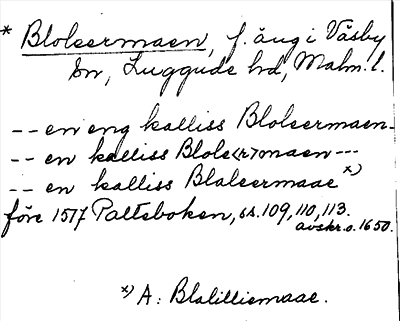 * Blokermaen, f. äng i Väsby
sn, Luggude hd, Malm. l.
-- en eng kalliss Blokermaen-
-- en kalliss Bloke(r)maen---
-- en kalliss Blakermaae x)
före 1517 Palteboken, ss. 109, 110, 113.
avskr. o. 1650.
x) A: Blalilliemaae.